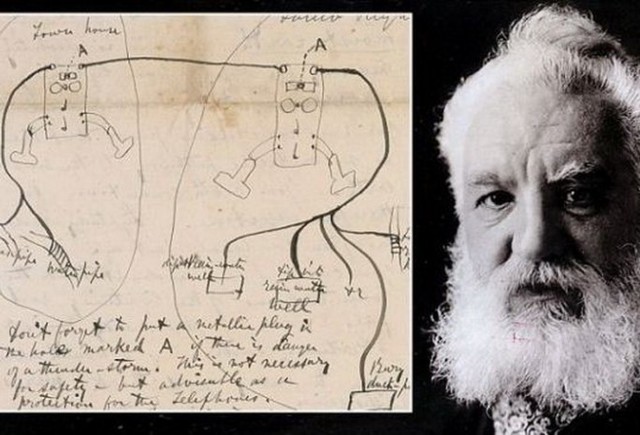 Town house
A
A
water pipe
well
rain water
well
Don't forget to put a metallic plug in
the holes marked A if there is danger
of a thunder-storm. This is not necessary
for safety - but advisable as a
protection for the Telephones.
Bury